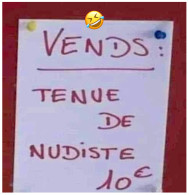 VENDS:
TENUE
DE
NUDISTE
10€